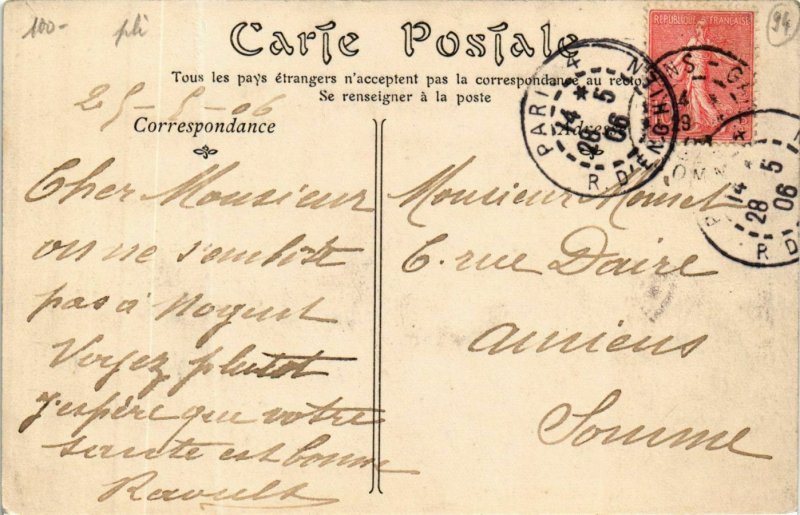 100-
pli
94
Carte Postale
Tous les pays étrangers n'acceptent pas la correspondance au recto.
Se renseigner à la poste
25-5-06
Correspondance
Adre
REPUBLIQUE FRANÇAISE
PARIS
14
28 5
06
R D
ENGHIEN
14
28 5
06
R D
Cher Monsieur
on ne s'embête
pas à Nogent
Voyez plutôt
J'espère que votre
santé est bonne
Raoult
Monsieur Momet
6. rue Daire
Amiens
Somme